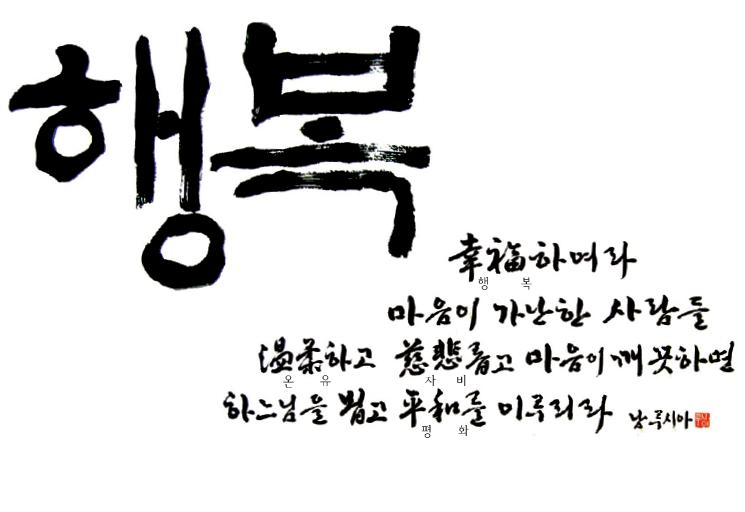 행복
幸福하며라
행 복
마음이 가난한 사람들
温柔하고 慈悲롭고 마음이 깨끗하면
온 유 자 비
하느님을 뵙고 平和를 이루리라 남루시아
평 화